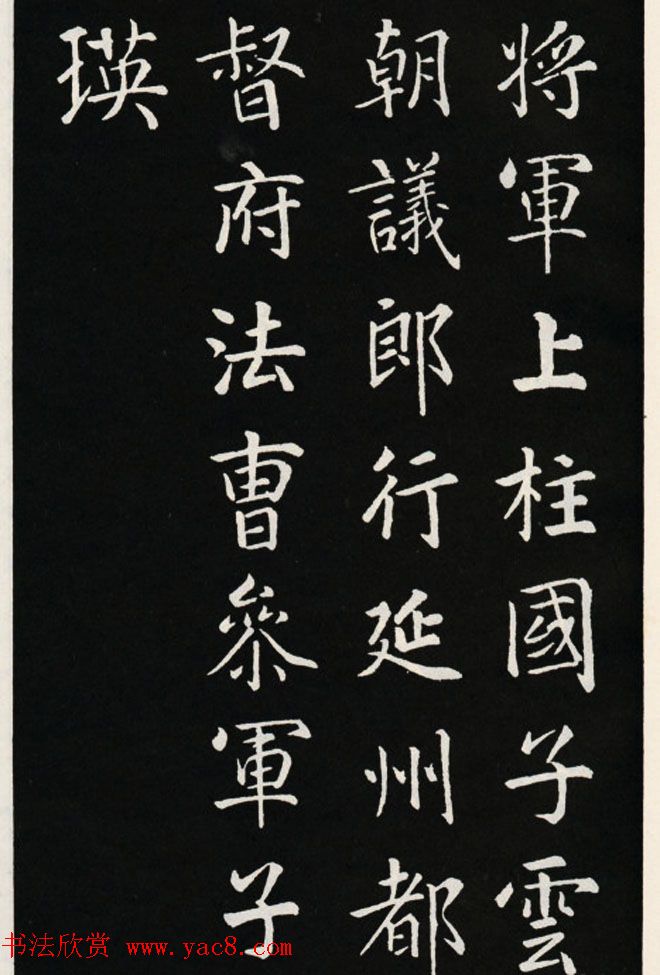 將軍上柱國子雲
朝議郎行延州都
督府法曹參軍子
瑛
书法欣赏 www.yac8.com